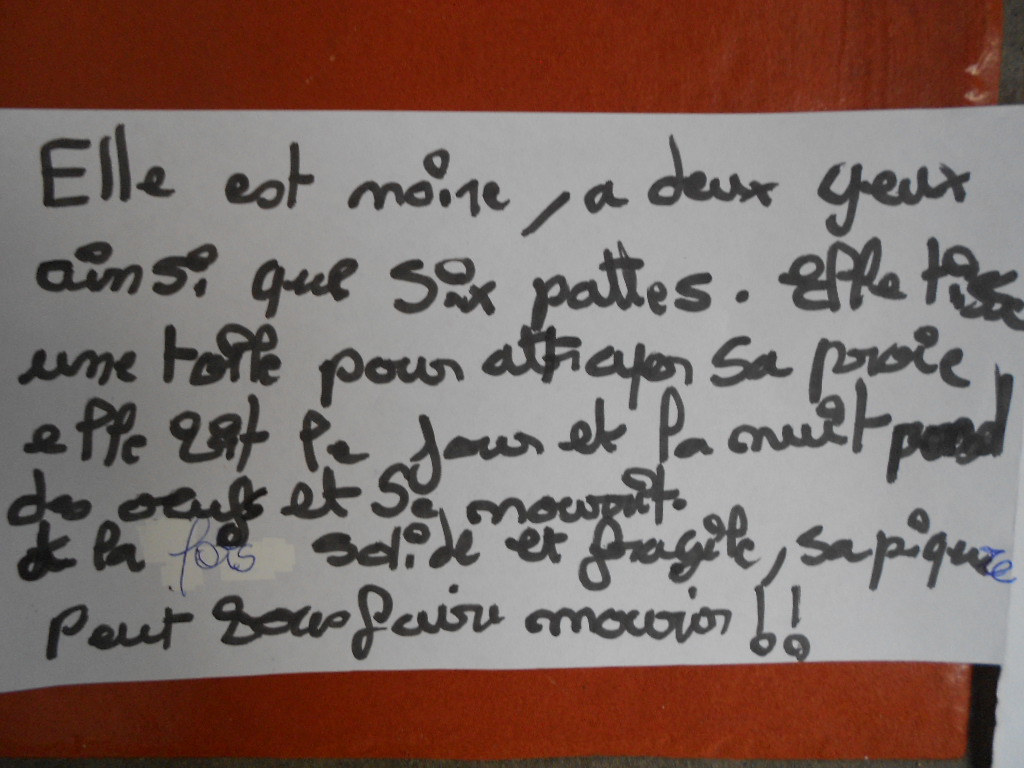 Elle est noire, a deux yeux
ainsi que six pattes. Elle tisse
une toile pour attraper sa proie
elle vit le jour et la nuit pond
des oeufs et se nourrit.
à la fois solide et fragile, sa piqure
peut vous faire mourir !!